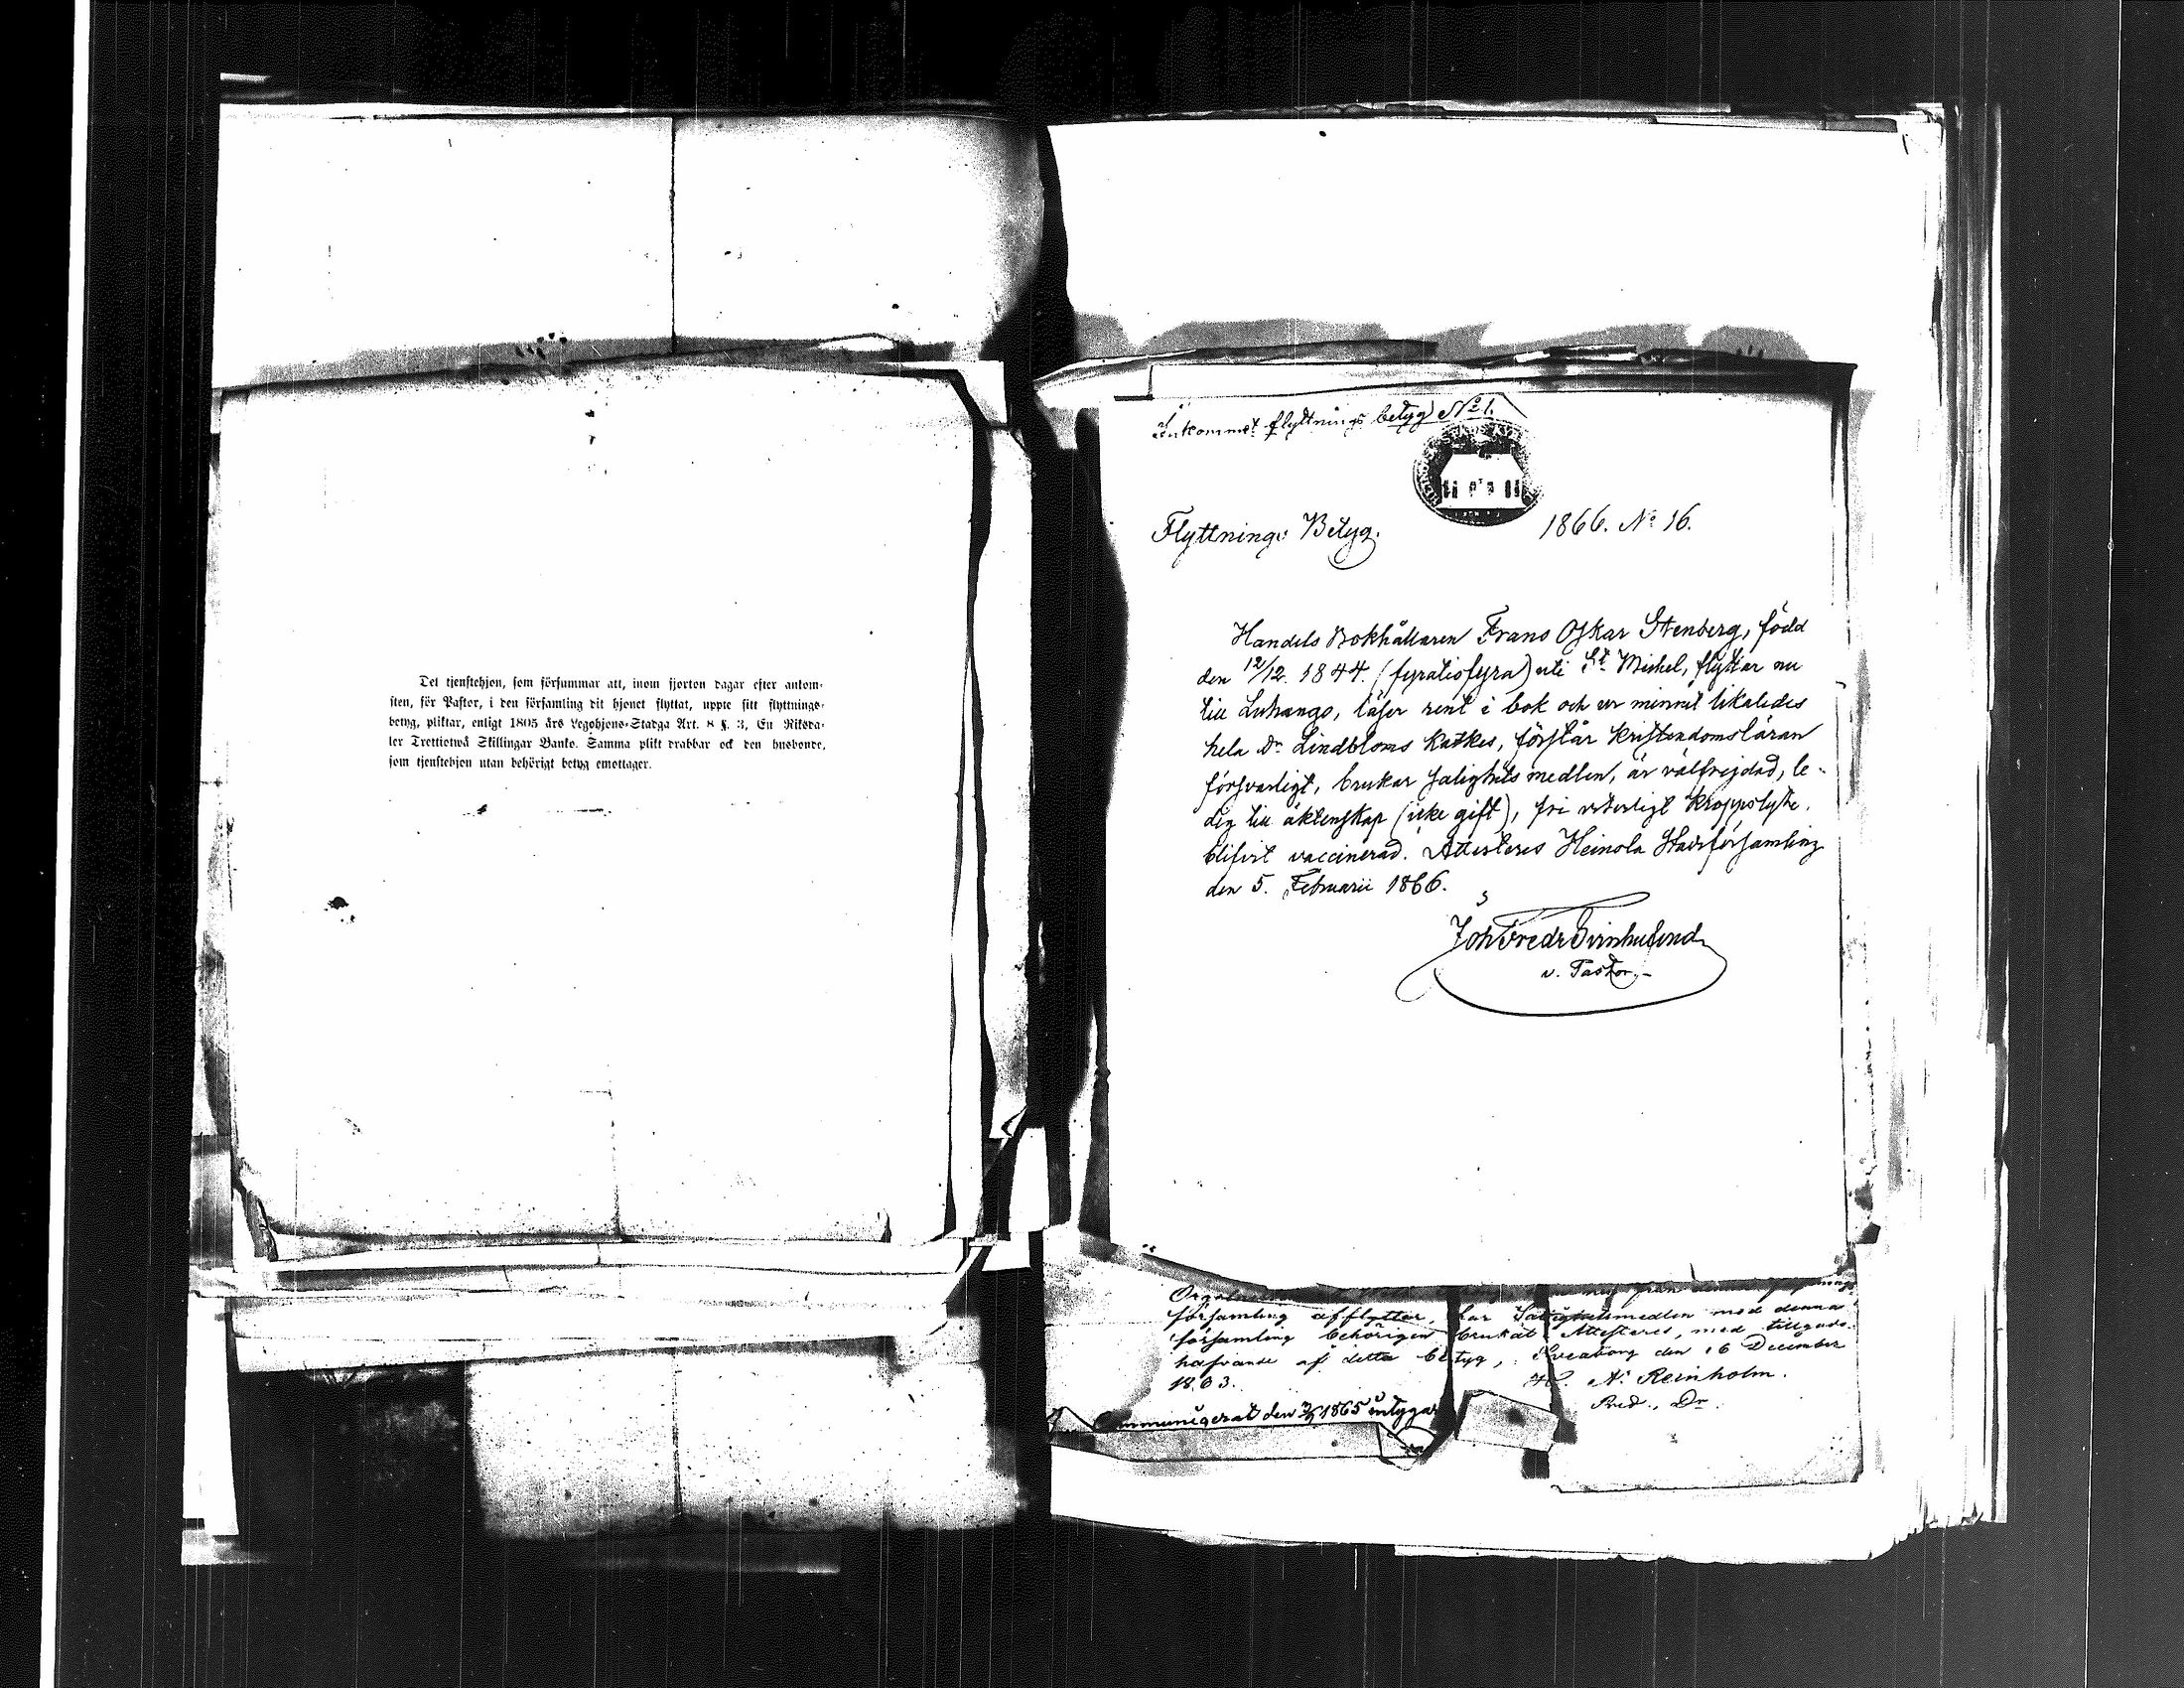 Det tjenstehjon, som försummar att, inom fjorton dagar efter ankom-
sten, för Pastor, i den församling dit hjonet flyttat, uppte sitt flyttnings-
betyg, pliktar, enligt 1805 års Legohjons-Stadga Art. 8 §. 3, En Riksda-
ler Trettiotwå Skillingar Banko. Samma plikt drabbar ock den husbonde,
som tjenstehjon utan behörigt betyg emottager.
Inkommet flyttnings betyg No 1.
Flyttnings Betyg.
1866. No 16.
Handels Bokhållaren Frans Oskar Stenberg, född
den 12/12 1844. (fyratiofyra) uti St Michel, flyttar nu
till Luhango, läser rent i bok och ur minnet likaledes
hela Dr Lindbloms Katkes, förstår kristendomsläran
försvarligt, brukar salighets medlen, är välfrejdad, le-
dig till äktenskap (icke gift), fri vrterligt kroppslyte,
blifvit vaccinerad. Attesteres Heinola Stadsförsamling
den 5. Februarii 1866.
Joh Fredr
v. Pastor.
församling afflyttar, har Salighetsmedlen med denna
församling behörigen brukat Attesteres, med tillgodo-
hafvande af detta betyg, Sveaborg den 16 December
1863.
A. Reinholm.
Pred., Dr.
Communicerat den 1865 intygar